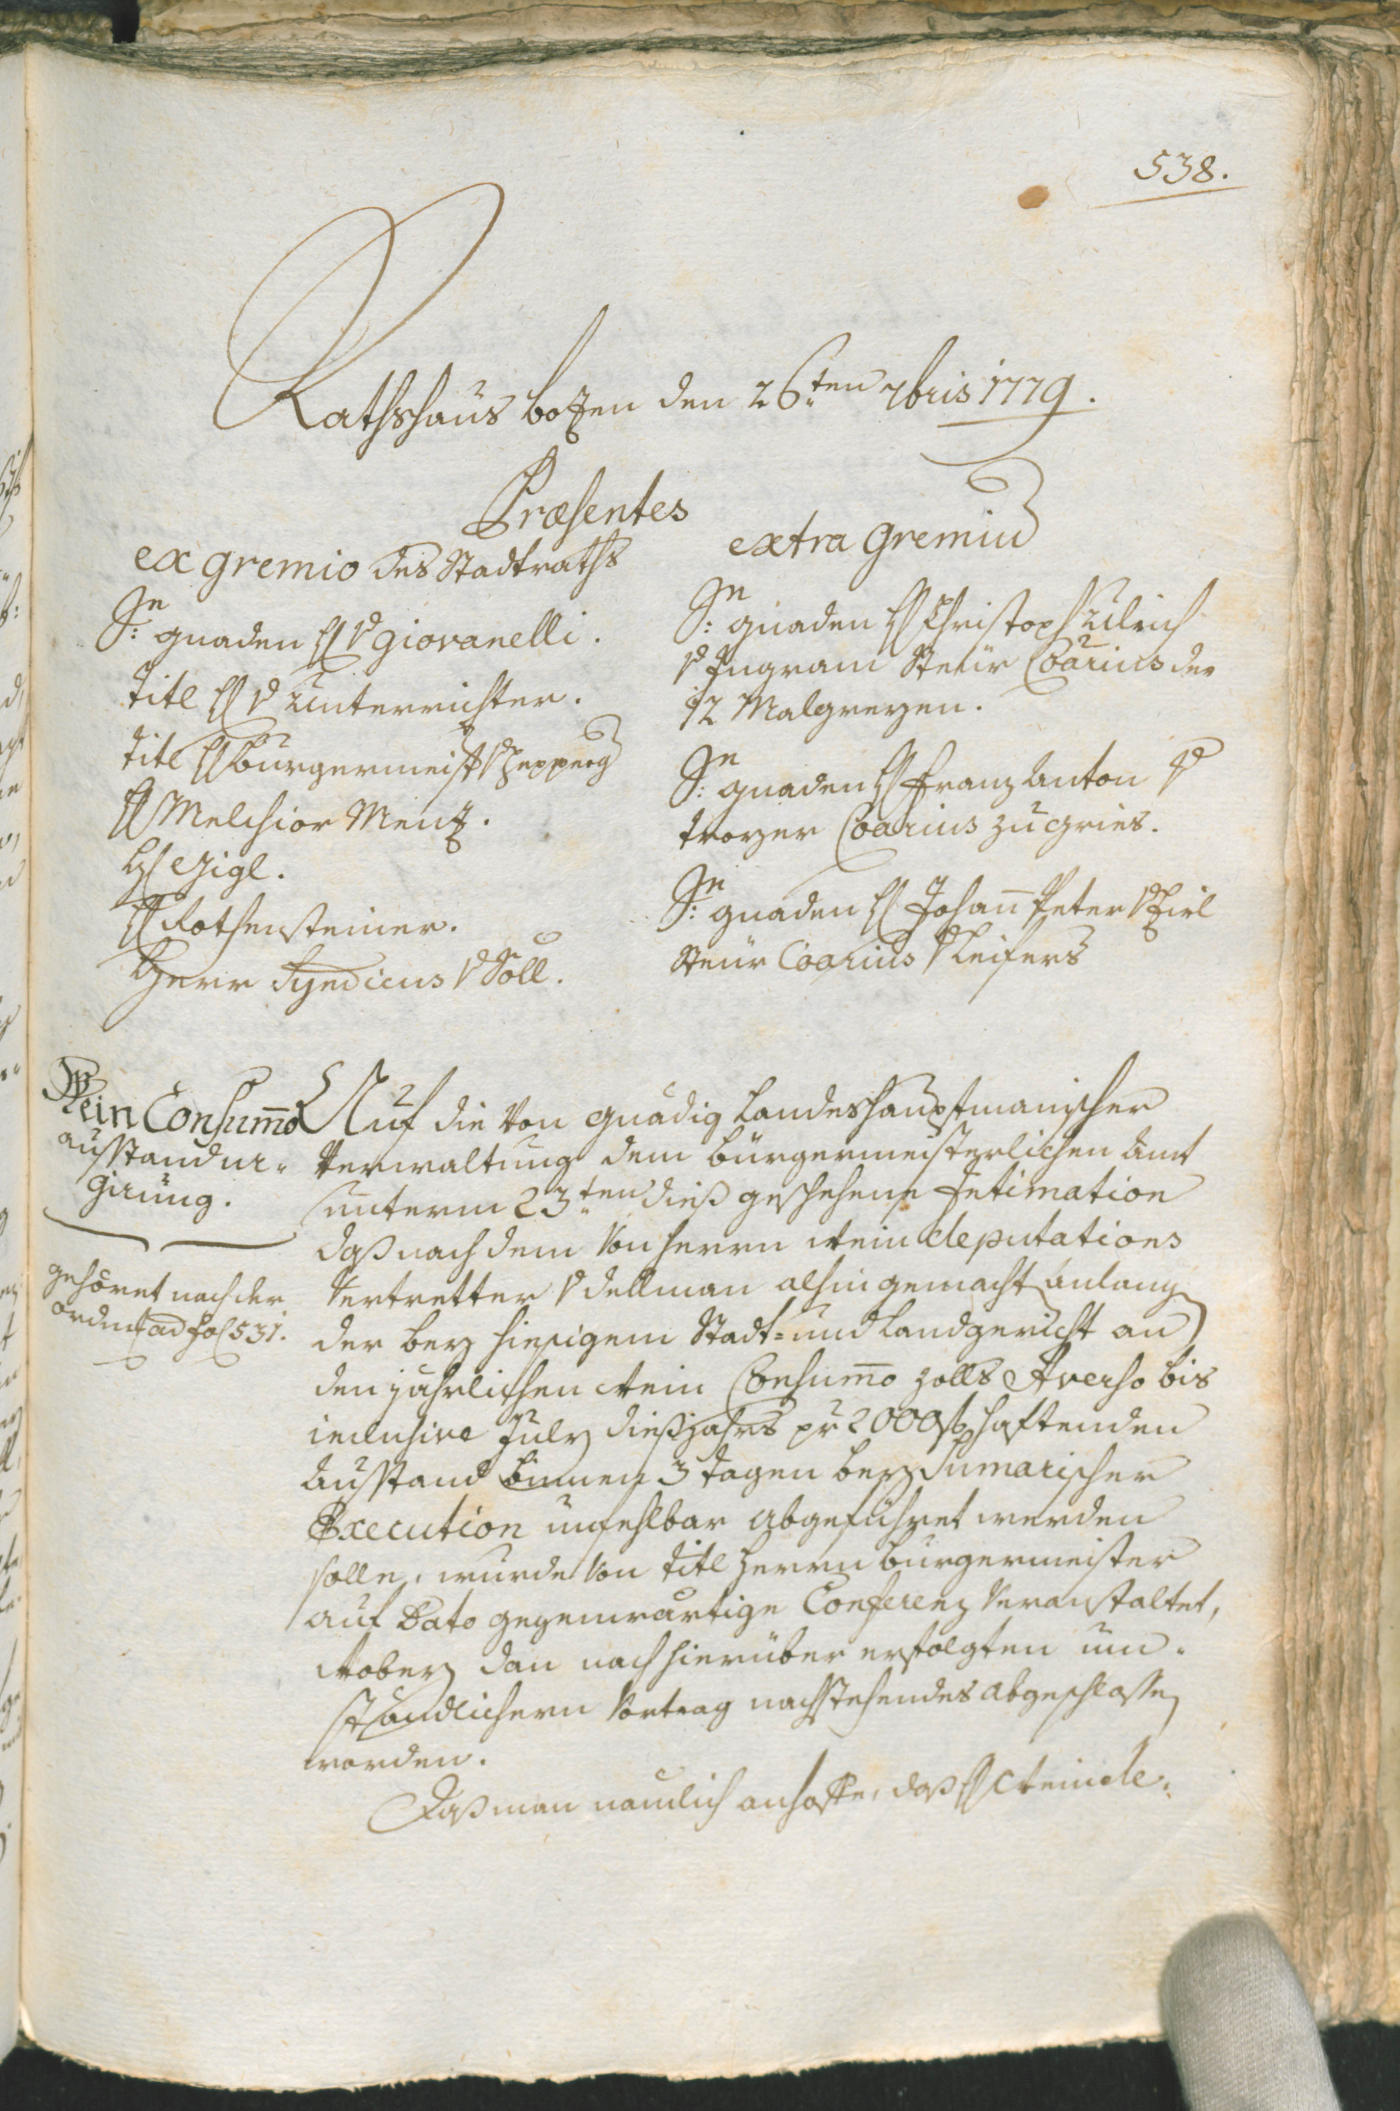 538.
Rathshaus bozen den 26ten 7bris 1779.
Præsentes
ex gremio des Stadtraths
Sr. gnaden H v giovanelli.
titl H v unterrichter.
titl H burgermeist v
H Melchior Menz.
H Gigl.
H Rothensteiner.
Herr Syndicus v Söll.
extra Gremiu
Sr. gnaden H Christoph Ulrich
v Ingram Steur Coarius der
12 Malgreyen.
Sr. gnaden H Franz Anton v
troyer Coarius zu gries.
Sr. gnaden H Johan̄ Peter v Zirl
Steur Coarius v Leifers
Wein Consum̄o
ausstand ur-
girung.
gehöret nach der
ordnu͂ ad fol 531.
Auf die von gnädig Landeshauptmanischer
Verwaltung dem burgermeisterlichen Amt
unterm 23ten dieß geschehene Intimation
daß nach dem von Herrn Weindeputations
Vertretter v dellman alhin gemacht anlang
der bey hiesigem Stadt- und Landgericht an
den jahrlichen Wein Consum̄o zolls Averso bis
inclusive July dießjahrs pr 2000 f haftenden
Ausstand binnen 3 tagen bey Sumarischer
Execution unfehlbar abgeführet werden
solle, wurde von titl Herrn burgermeister
auf Dato gegenwärtige Conferenz veranstaltet,
wobey dan nach hierüber erfolgten um-
ständlichern Vortrag nachstehendes abgeschlossen
worden.
Daß man nämlich anhoffe, daß H Weinde-